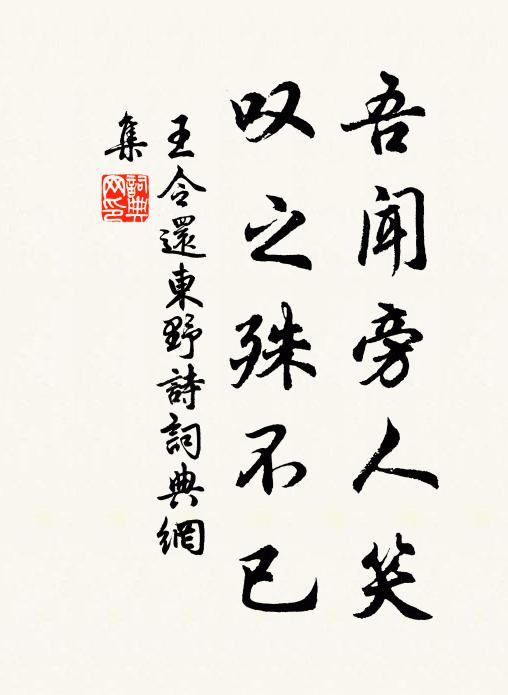 吾闻旁人笑
叹之殊不已
王令還東野詩詞典網
集
詞典
网印